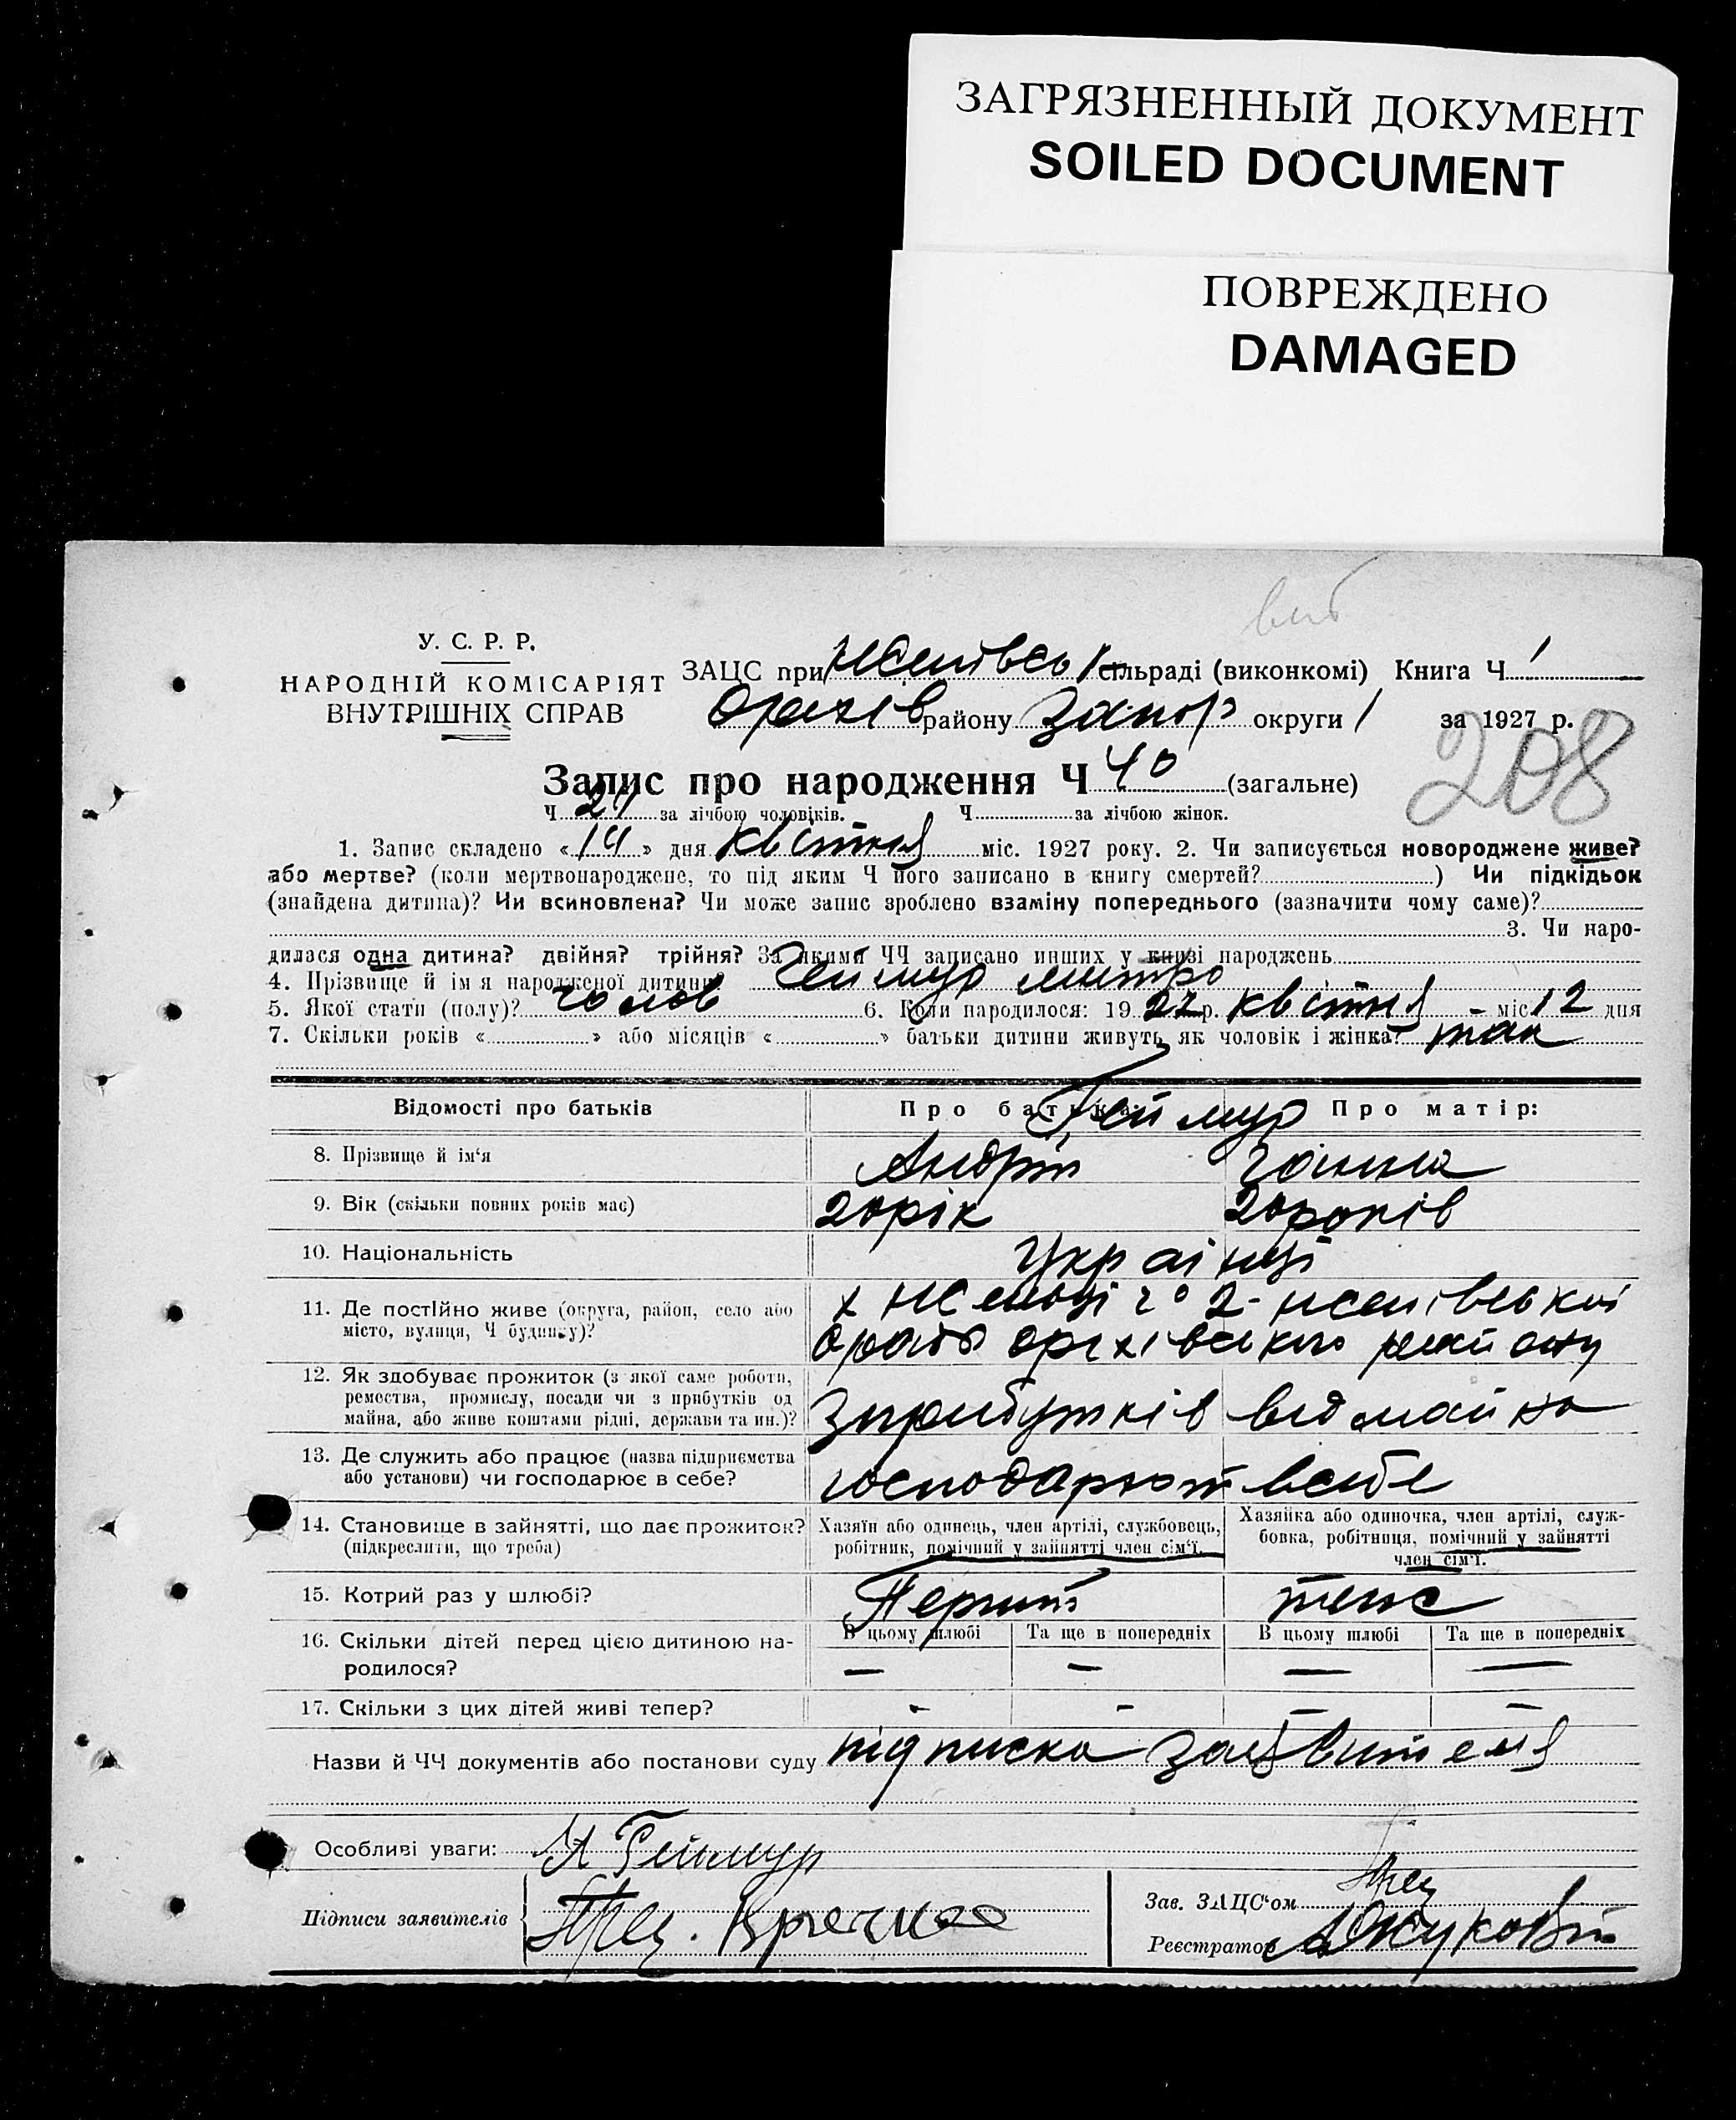 ЗАГРЯЗНЕННЫЙ ДОКУМЕНТ
SOILED DOCUMENT
ПОВРЕЖДЕНО
DAMAGED
У. С. Р. Р.
НАРОДНІЙ КОМІСАРІЯТ
ВНУТРІШНІХ СПРАВ
ЗАЦС при сільраді (виконкомі) Книга Ч 1
Оріхів району Запор округи 1 за 1927 р.
208
Запис про народження Ч 40 (загальне)
Ч 21 за лічбою чоловіків. Ч за лічбою жінок.
1. Запис складено « 14 » дня квітня міс. 1927 року. 2. Чи записується новороджене живе?
або мертве? (коли мертвонароджене, то під яким Ч його записано в книгу смертей? ) Чи підкідьок
(знайдена дитина)? Чи всиновлена? Чи може запис зроблено взаміну попереднього (зазначити чому саме)?
3. Чи наро-
дилася одна дитина? двійня? трійня? За якими ЧЧ записано инших у книзі народжень
4. Прізвище й ім я народженої дитини? Геймур Митро
5. Якої стати (полу)? чолов 6. Коли народилося: 19 27 р. квітня міс 12 дня
7. Скільки років « » або місяців « » батьки дитини живуть як чоловік і жінка? так
Відомості про батьків Про батька: Геймур Про матір:
8. Прізвище й ім‘я Андрій Ганна
9. Вік (скільки повних років має) 20 рік 20 років
10. Національність Українці
11. Де постійно живе (округа, район, село або
місто, вулиця, Ч будинку)?
оріхівського району
12. Як здобуває прожиток (з якої саме роботи,
ремества, промислу, посади чи з прибутків од
майна, або живе коштами рідні, держави та ин.)? З прибутків від майна
13. Де служить або працює (назва підприємства
або установи) чи господарює в себе? господарюют в себе
14. Становище в зайнятті, що дає прожиток? (підкреслити, що треба)
Хазяїн або одинець, член артілі, службовець,
робітник, помічний у зайнятті член сім‘ї.
Хазяйка або одиночка, член артілі, служ-
бовка, робітниця, помічний у зайнятті
член сім‘ї.
15. Котрий раз у шлюбі? Перший теж
16. Скільки дітей перед цією дитиною на-
родилося?
В цьому шлюбі Та ще в попередніх В цьому шлюбі Та ще в попередніх
— — — —
17. Скільки з цих дітей живі тепер? - - - -
Назви й ЧЧ документів або постанови суду підписка заявителя
Особливі уваги: А Геймур
Підписи заявителів
Зав. ЗАЦС‘ом
Реєстратор